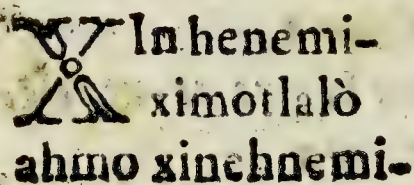 XIn.henemi-
ximotlalò
ahmo xinehnemi-